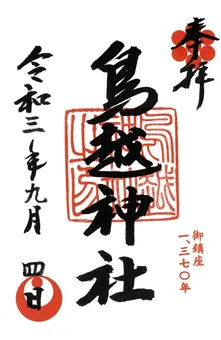 奉拝
御鎮座
一、三七〇年
鳥越神社
令和三年九月
四日